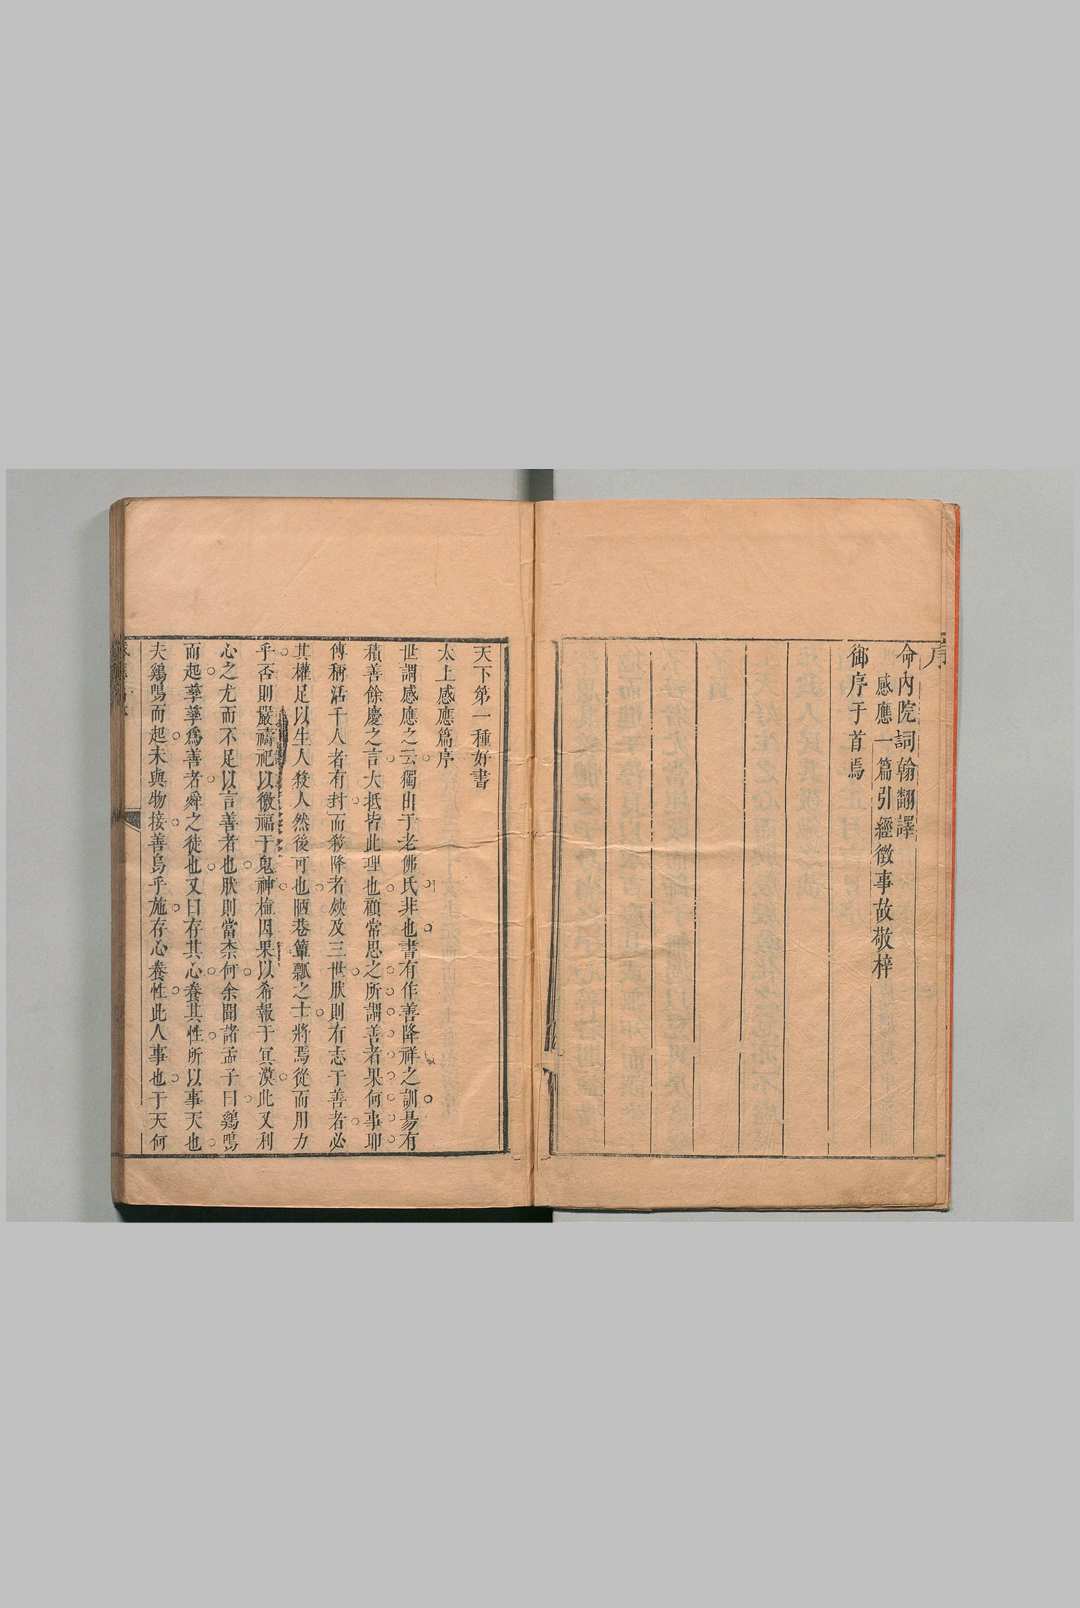 命內院詞翰翻譯
感應一篇引經徵事故敬梓
御序于首焉
天下第一種好書
太上感應篇序
世謂感應之云獨出于老佛氏非也書有作善降祥之訓易有
積善餘慶之言大抵皆此理也顧常思之所謂善者果何事耶
傳稱活千人者有封而殺降者殃及三世肰則有志于善者必
其權足以生人殺人然後可也陋巷簞瓢之士將焉從而用力
乎否則嚴禱祀以徼福于鬼神 因果以希報于冥漠此又利
心之尤而不足以言善者也肰則當柰何余聞諸孟子曰鷄鳴
而起孳孳爲善者舜之徒也又曰存其心養其性所以事天也
夫鷄鳴而起未與物接善烏乎施存心養性此人事也于天何